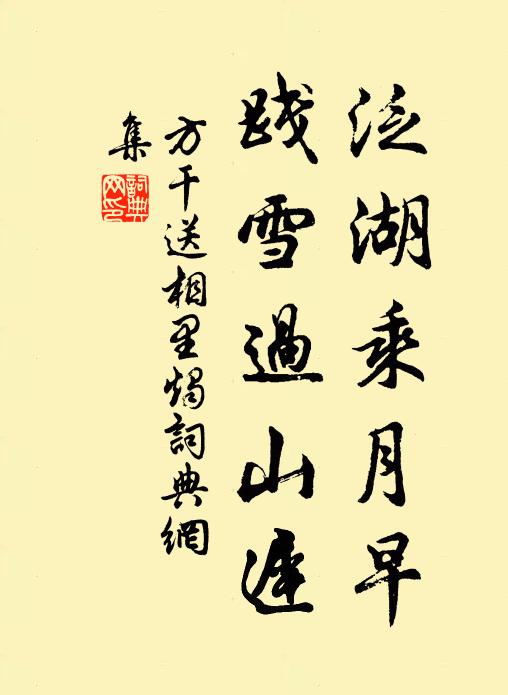 泛湖乘月早
踐雪過山遲
方干送相里燭詞典網
集
詞典网印